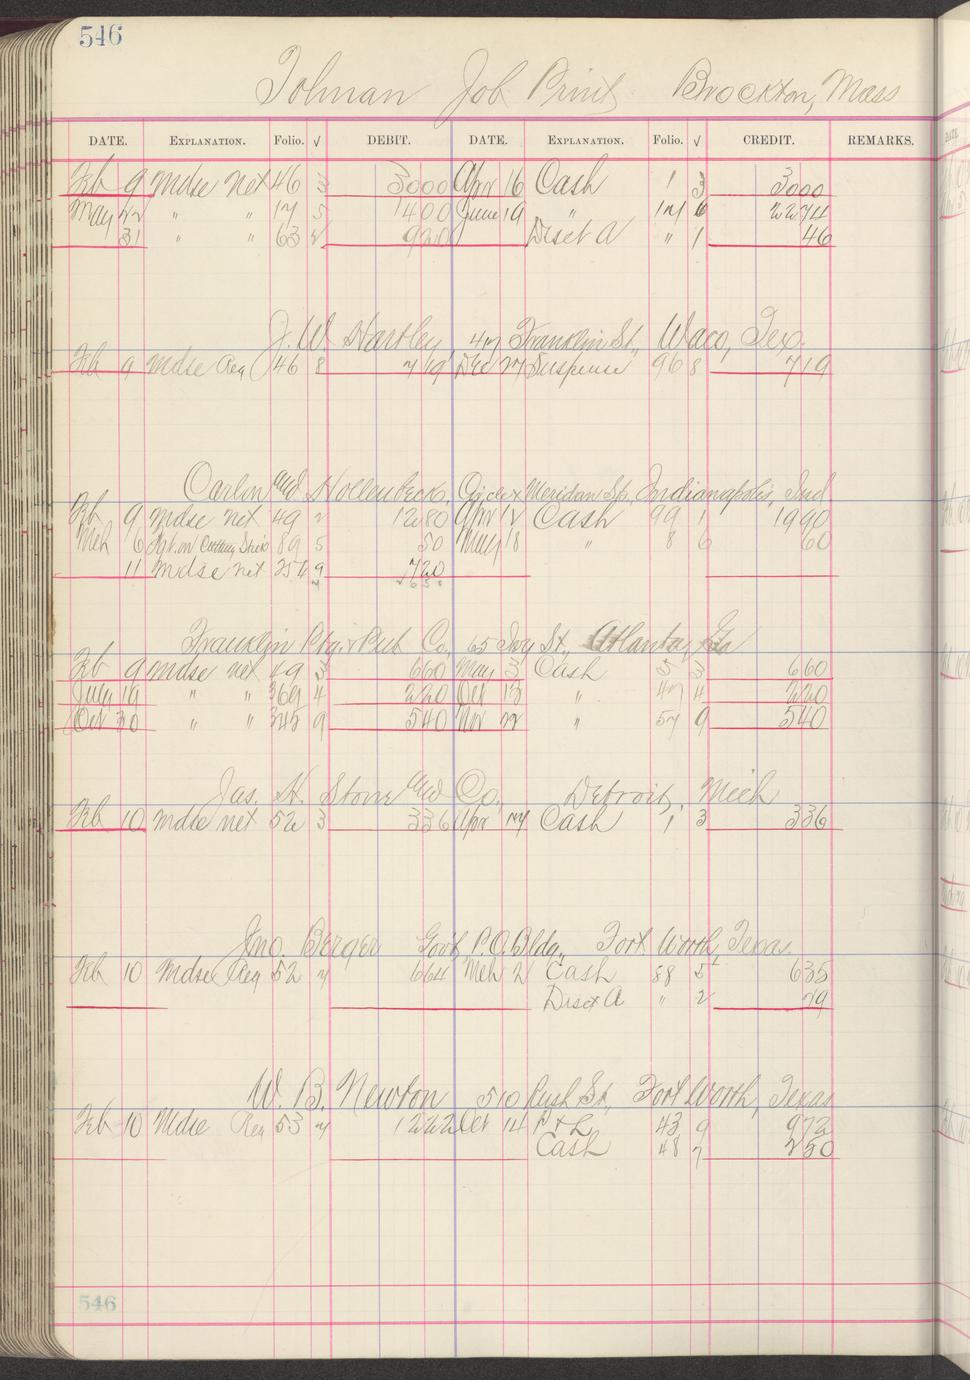 546
Tolman Job Print Brockton, Mass
DATE. EXPLANATION. Folio. √ DEBIT. DATE. EXPLANATION. Folio. √ CREDIT. REMARKS.
Feb 9 Mdse Net 46 3 3000 Apr 16 Cash 1 3 3000
May 22 " " 17 5 1400 June 19 " 17 6 2274
31 " " 63 2 920 Disct A " 1 46
J. W. Hartley 47 Franklin St., Waco, Tex.
Feb 9 Mdse Reg 46 8 719 Dec 27 Suspense 96 8 719
Carlon and Hollenbeck, Circle & Meridian Sts., Indianapolis, Ind
Feb 9 Mdse net 49 2 1280 Apr 12 Cash 99 1 1990
Mch 6 Fgt on Cutting Stick 89 5 50 May 18 " 8 6 60
11 Mdse net 254 9 720
Franklin Ptg. & Pub Co., 65 Ivy St., Atlanta, Ga
Feb 9 Mdse net 49 3 660 May 3 Cash 5 3 660
July 19 " " 369 4 220 Oct 13 " 47 4 220
Oct 30 " " 345 9 540 Nov 22 " 57 9 540
Jas. H. Stone and Co., Detroit, Mich
Feb 10 Mdse net 52 3 336 Apr 17 Cash 1 3 336
Jno. Berger Gov't P.O. Bldg., Fort Worth, Texas.
Feb 10 Mdse Reg 52 7 664 Mch 2 Cash 88 5 635
Disct A " 2 29
W. B. Newton 510 Rush St., Fort Worth, Texas
Feb 10 Mdse Reg 53 7 1222 Oct 14 P & L 43 9 972
Cash 48 7 250
546